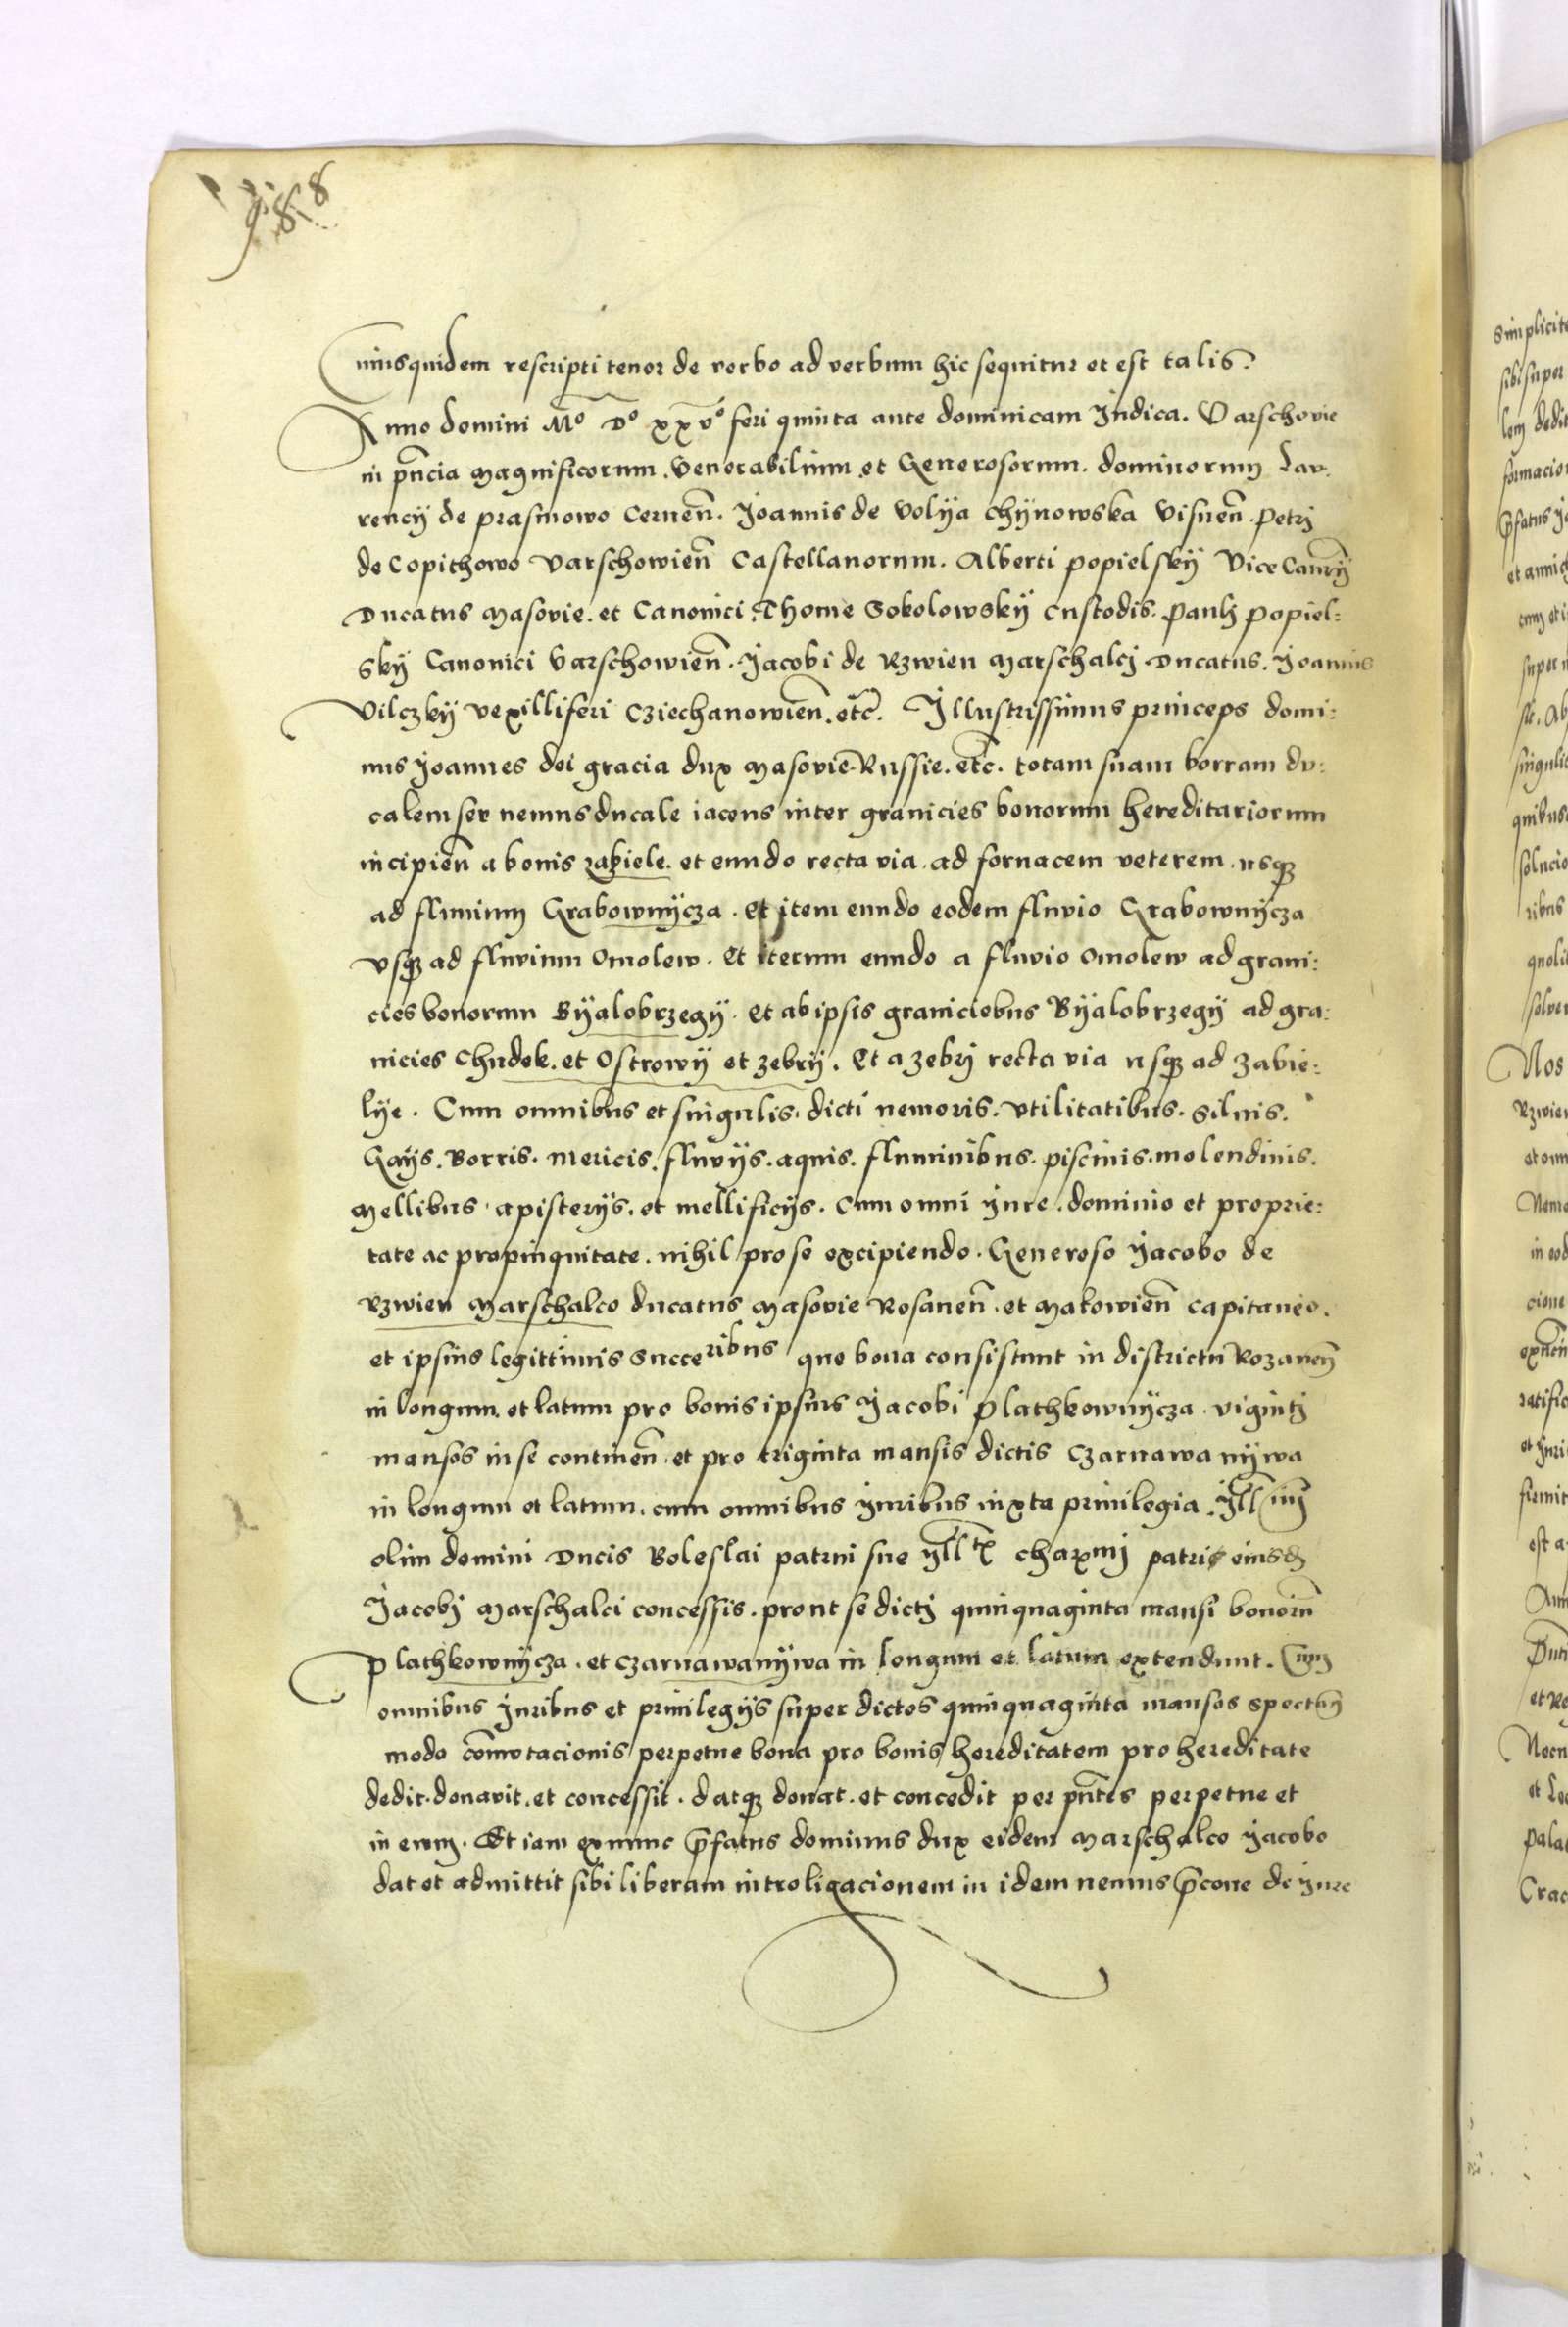 Cuiusquidem rescripti tenor de verbo ad verbum hic sequitur et est talis.
Anno domini M° D° xxv° feri quinta ante dominicam Judica. Varschovie
in pñcia magnificorum. Venerabilium et Generosorum. dominorum Lav.
rencÿ de prasmowo Cernen̄. Joannis de Volÿa chÿnowska Visnen̄. Petrj
de Copithowo Varschowien̄ Castellanorum. Alberti popielskÿ Vice Cancrÿ
Ducatus Masovie. et Canonici. Thome Sokolowskÿ Custodis. Pauli popiel:
skÿ Canonici Varschowien̄. Jacobi de Rzwien Marschalcj Ducatus. Joannis
Vilczkÿ vexilliferi Cziechanowien̄. etc̄. Illustrissimus princeps domi:
nus Joannes dei gracia dux Masovie. Russie. etc̄. totam suam borram du:
calem seu nemus ducale iacens inter granicies bonorum hereditariorum
incipien̄ a bonis zabiele. et eundo recta via. ad fornacem veterem. usqȝ
ad fluvium Grabownÿcza. Et item eundo eodem fluvio Grabownÿcza
vsqȝ ad fluvium Omolew. Et iterum eundo a fluvio Omolew ad grani:
cies bonorum Bÿalobrzegÿ. Et ab ipsis graniciebus Bÿalobrzegÿ ad gra:
nicies Chudek. et Ostrowÿ et zebrÿ. Et a zebrj recta via usqȝ ad zabie:
lÿe. Cum omnibus et singulis. dicti nemoris. vtilitatibus. Siluis.
Gaÿs. Borris. mericis. fluvÿs. aquis. fluminibus. piscinis. molendinis.
Mellibus apisterÿs. et mellificÿs. Cum omni jure. dominio et proprie:
tate ac propinquitate. nihil pro se excipiendo. Generoso Jacobo de
Rzwien Marschalco ducatus Masovie Rosanen̄. et Makowien̄ Capitaneo.
et ipsius legittimis Succeribus que bona consistunt in districtu Rozanen̄
in longum. et latum pro bonis ipsius Jacobi Plathkownÿcza. vigintj
mansos in se continen̄. et pro triginta mansis dictis Czarnawa nÿwa
in longum et latum. cum omnibus juribus iuxta priuilegia. Jll
olim domini Ducis Boleslai patrui sue jll charxmj patris eiusdȝ
Jacobj Marschalci concessis. prout se dictj quinquaginta mansi bonorum̄
Plathkownÿcza. et Czarnawanÿwa in longum et latum extendunt. Cum
omnibus juribus et priuilegÿs super dictos quinquaginta mansos spectan̄
modo com̄vtacionis perpetue bona pro bonis hereditatem pro hereditate
dedit. donavit. et concessit. datqȝ donat. et concedit per pn̄tes perpetue et
in evum. Et iam exnunc p̄fatus dominus dux eidem Marschalco Jacobo
dat et admittit sibi liberam introligacionem in idem nemus p̄cone de jure